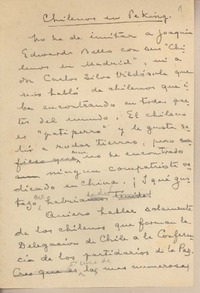 Chilenos en Peking. 1
No he de imitar a Joaquín
Edwards Bello con su "Chi-
lenos en Madrid", ni a
don Carlos Silva Vildósola que
nos habló de chilenos que i-
ba encontrando en todas par-
tes del mundo. El chileno
es "patiperro" y le gusta sa-
lir a rodar tierras, pero
no he encontrado
ningún compatriota ra-
dicado en China. ¡Y qué gus-
tazo habría
Quiero hablar solamente
de los chilenos que forman la
Delegación de Chile a la Conferen-
cia de los partidarios de la Paz.
Creo que es las más numerosas